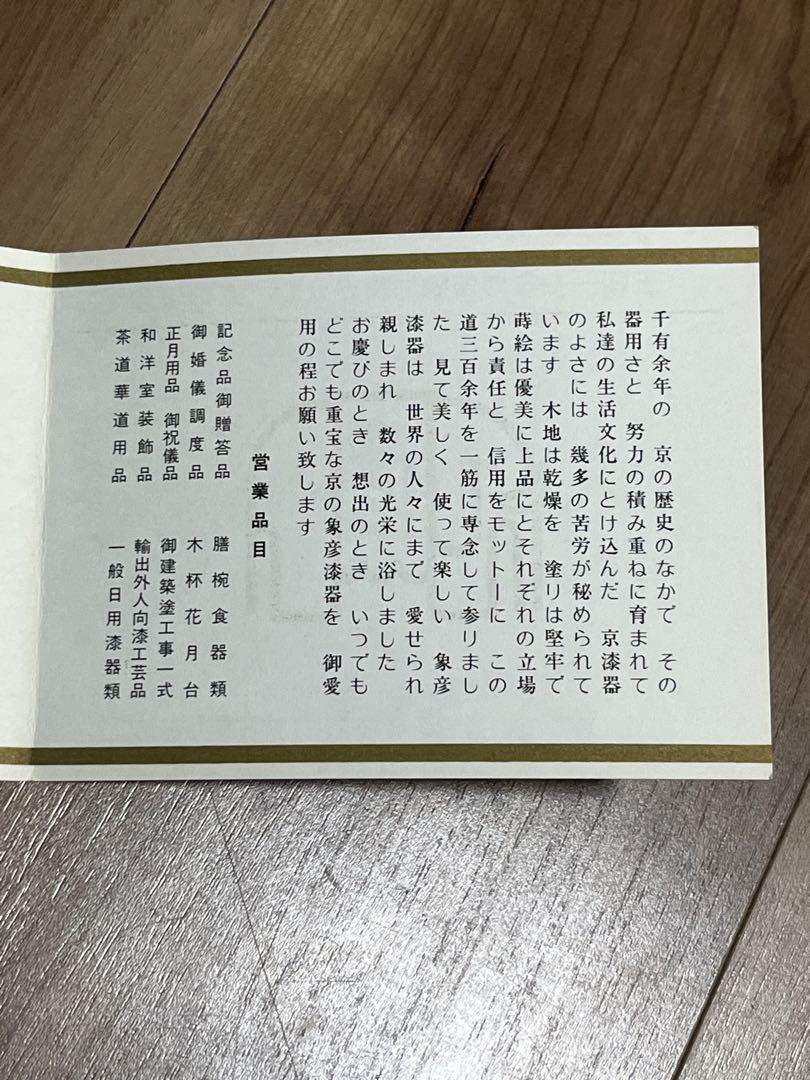 千有余年の　京の歴史のなかで　その
器用さと　努力の積み重ねに育まれて
私達の生活文化にとけ込んだ　京漆器
のよさには　幾多の苦労が秘められて
います　木地は乾燥を　塗りは堅牢で
蒔絵は優美に上品にとそれぞれの立場
から責任と　信用をモットーに　この
道三百余年を一筋に専念して参りまし
た　見て美しく　使って楽しい　象彦
漆器は　世界の人々にまで　愛せられ
親しまれ　数々の光栄に浴しました
お慶びのとき　想出のとき　いつでも
どこでも重宝な京の象彦漆器を　御愛
用の程お願い致します
営業品目
記念品御贈答品
御婚儀調度品
正月用品　御祝儀品
和洋室装飾品
茶道華道用品
膳椀食器類
木杯花月台
御建築塗工事一式
輸出外人向漆工芸品
一般日用漆器類